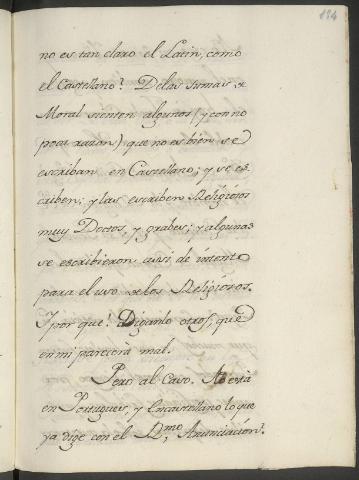 184
no es tan claro el Latin, como
el Castellano? De las sumas de
Moral sienten algunos (y con no
poca razon) que no es bien se
escriban en Castellano; y se es-
criben; y las escriben Religiosos
muy Doctos, y grabes; y algunas
se escribieron casi de intento
para el uso de los Religiosos.
Y por que? Diganlo otros, que
en mi parecerà mal.
Pero al Caso. No està
en Portugues, y en Castellano lo que
ya dige con el D.mo Anunciacion?